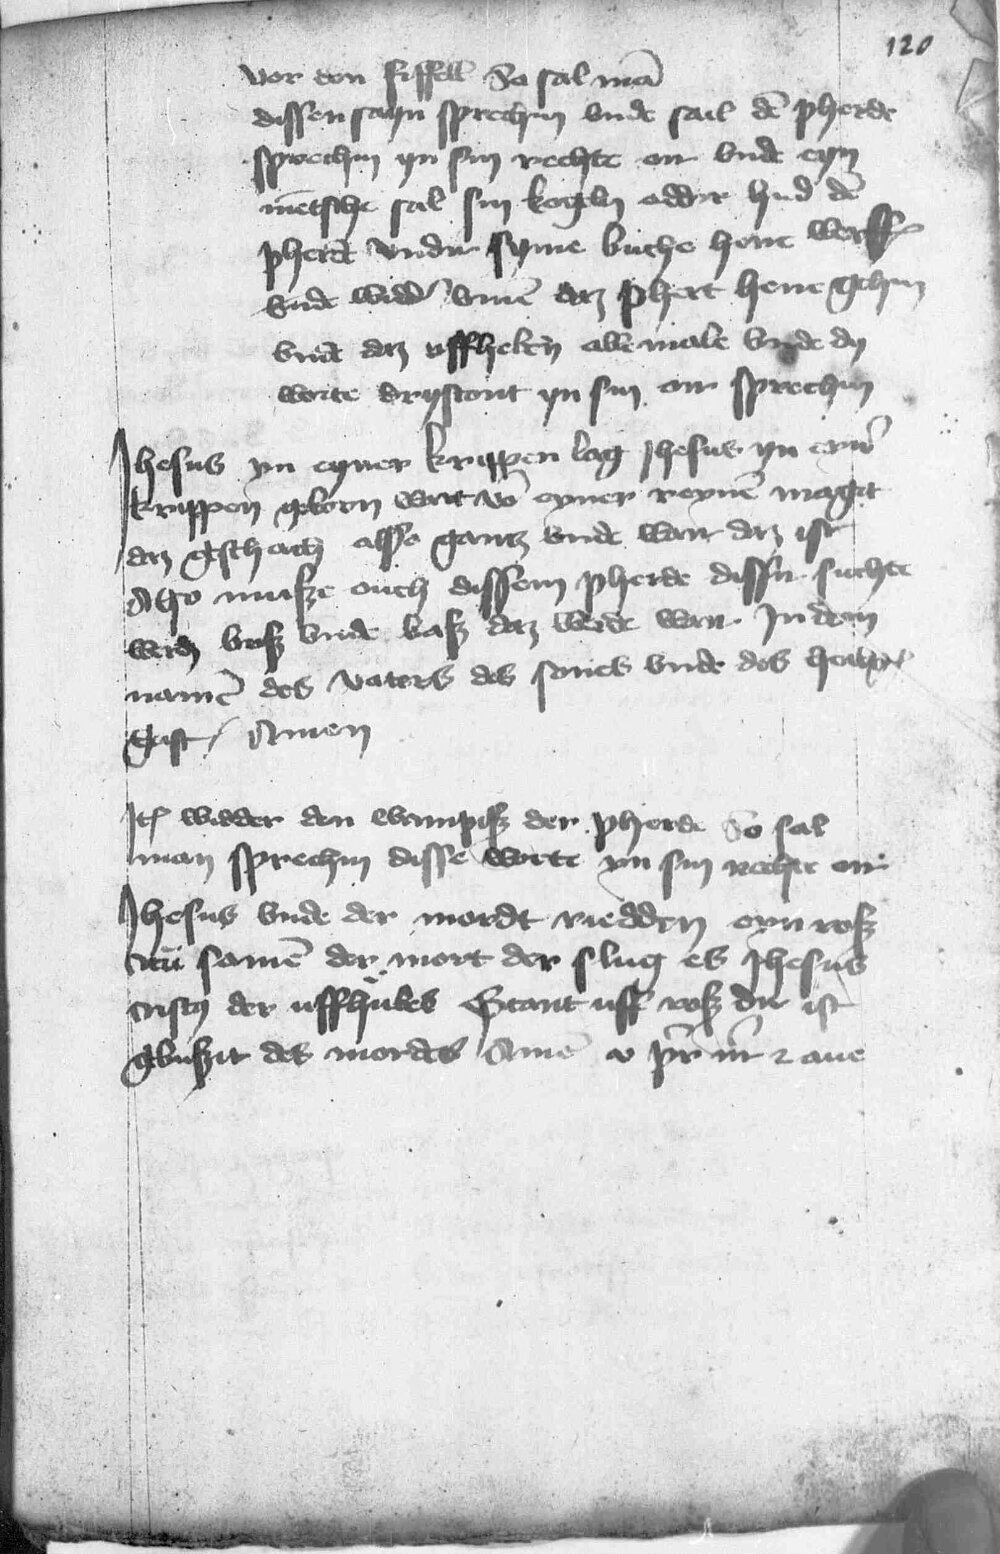 120
vor den fiffell So sal mā
dissen sayn sprechin vnde sail dē pherde
sprechin yn sin rechte or vnde eyn
mētsche sal sin kogeln addir hud dē
pherde vndir syme buche hene werff
vnde widd vmē daz phert hene gehin
vnde daz uffhebin abēmale vnde dy
worte drystont yn sin or sprechin
Jhesus yn eyner krippen lag Jhesus yn eynr
krippen geborn wart vō eyner reynē magit
daz gschach also gantz vnde war daz ist
Also musze ouch dissem pherde dissir suchte
werdē busz vnde basz daz werde war In dem
namē des vaters des sones vnde des heilgē
geist / Amen
Itē widder den wampisz der pherde So sal
man sprechin disse worte yn sin rechte or
Jhesus vnde der mordt riedden eyn rosz
czu samē der mort der slug es Jhesus
cristus der uffhubes Stant uff rosz dir ist
gebuszit des mordes Amē v pr nr z aue